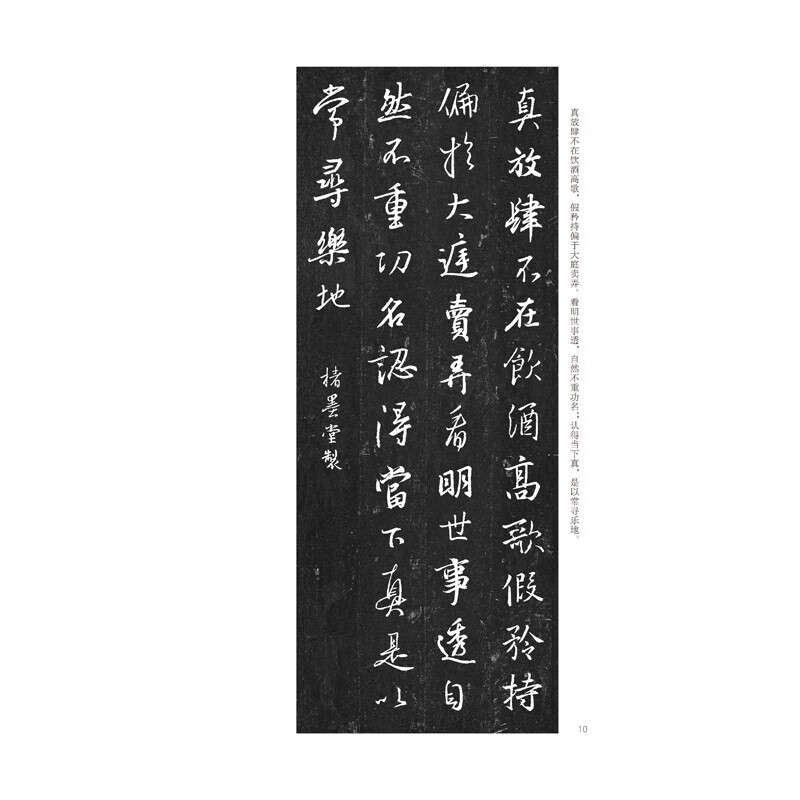 真放肆不在饮酒高歌，假矜持偏于大庭卖弄。看明世事透，自然不重功名；认得当下真，是以常寻乐地。
真放肆不在飲酒高歌假矜持
偏於大庭賣弄看明世事透自
然不重功名認得當下真是以
常尋樂地
楮墨堂製
10